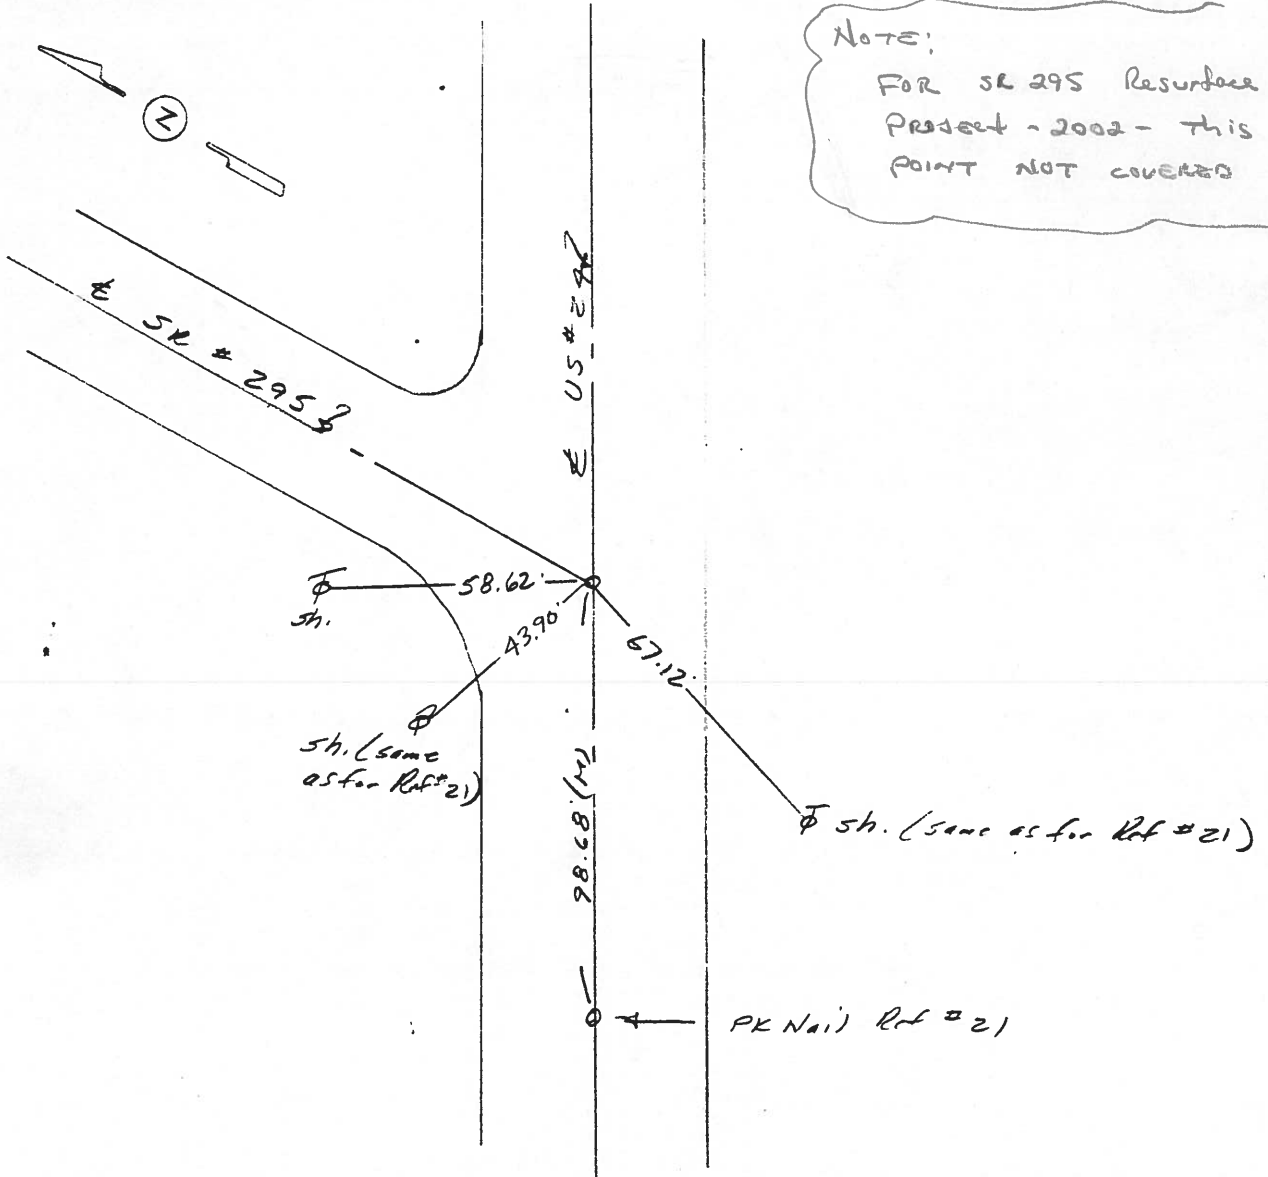 NOTE:
FOR SR 295 Resurface
PROJECT - 2002 - This
POINT NOT COVERED
N
℄ SR # 295
℄ US # 24
58.62'
sh.
43.90'
67.12'
sh. (same
as for Ref # 21)
98.68' (M)
sh. (same as for Ref # 21)
PK Nail Ref # 21